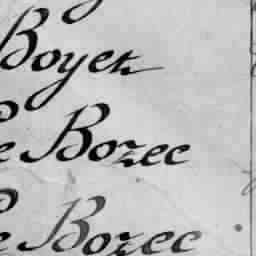 Boyer
Le Bozec
Le Bozec